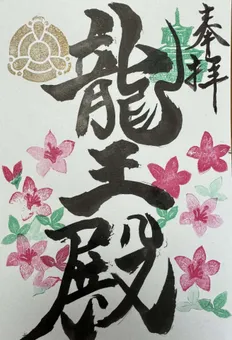 奉拝
龍王殿